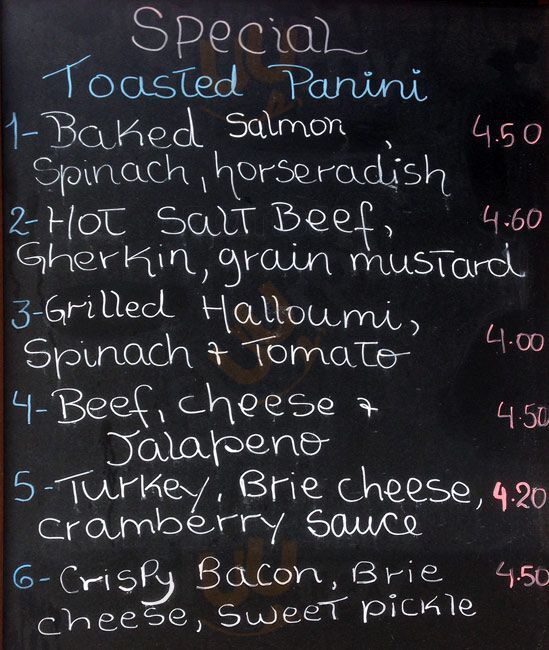 Special
Toasted Panini
1-Baked Salmon, 4.50
Spinach, horseradish
2-Hot Salt Beef, 4.60
Gherkin, grain mustard
3-Grilled Halloumi,
Spinach + Tomato 4.00
4-Beef, cheese + 4.50
Jalapeno
5-Turkey, Brie cheese, 4.20
cramberry sauce
6-Crispy Bacon, Brie 4.50
cheese, sweet pickle